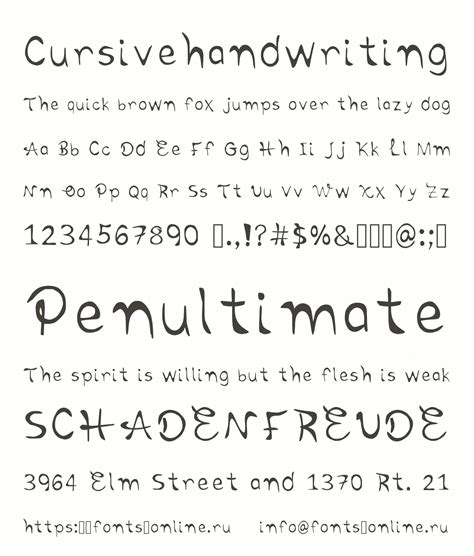 Cursivehandwriting
The quick brown fox jumps over the lazy dog
Aa Bb Cc Dd Ee Ff Gg Hh Ii Jj Kk Ll Mm
Nn Oo Pp Qq Rr Ss Tt Uu Vv Ww Xx Yy Zz
1234567890 ▯.,!?#$%&▯▯▯▯@:;▯
Penultimate
The spirit is willing but the flesh is weak
SCHADENFREUDE
3964 Elm Street and 1370 Rt. 21
https:▯▯fonts▯online.ru info@fonts▯online.ru